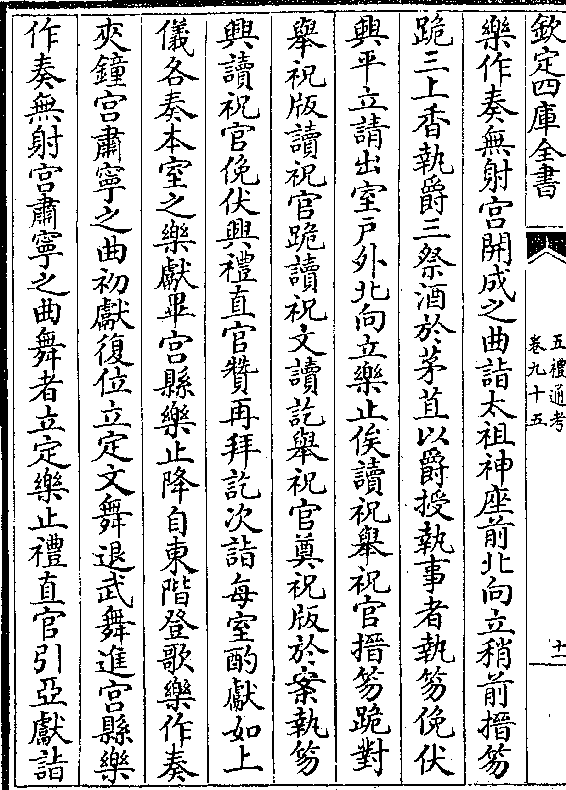 欽定四庫全書
五禮通考
卷九十五
十一
樂作奏無射宮開成之曲詣太祖神座前北向立稍前搢笏
跪三上香執爵三祭酒於茅苴以爵授執事者執笏俛伏
興平立請出室戸外北向立樂止俟讀祝舉祝官搢笏跪對
舉祝版讀祝官跪讀祝文讀訖舉祝官奠祝版於案執笏
興讀祝官俛伏興禮直官贊再拜訖次詣每室酌獻如上
儀各奏本室之樂獻畢宮縣樂止降自東階登歌樂作奏
夾鐘宮肅寧之曲初獻復位立定文舞退武舞進宮縣樂
作奏無射宮肅寧之曲舞者立定樂止禮直官引亞獻詣